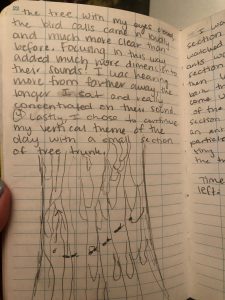 the tree with my eyes closed
the bird calls came in loudly
and much more clear than
before. Focusing in this way
added much more dimension to
their sounds. I was hearing
more from farther away, the
longer I sat and really
concentrated on their sound.
④ Lastly, I chose to continue
my vertical theme of the
day with a small section
of tree trunk.
I was
section
watched
section
then
been th
come
of the
section
an
partial
the
Time
left: